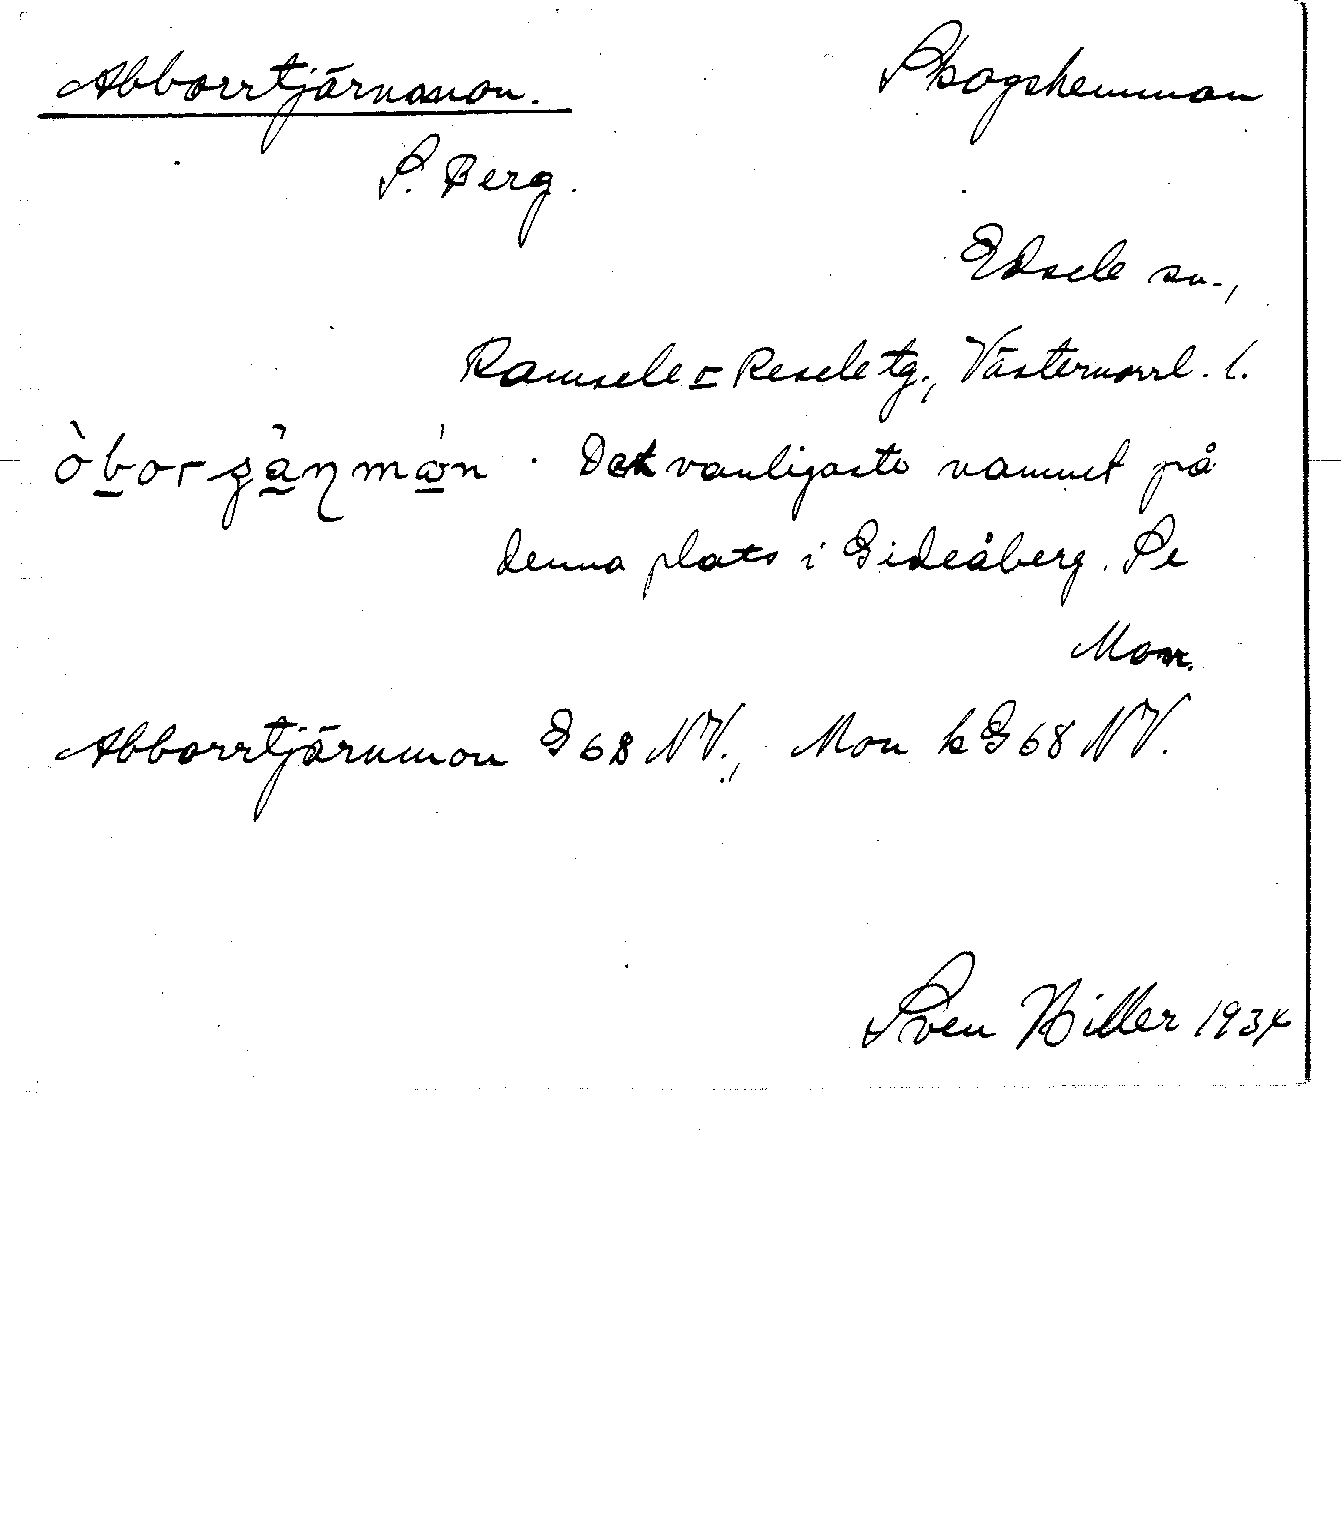 Abborrtjärnmon.
Skogshemman
S. Berg.
Edsele sn.,
Ramsele o Resele tg., Västernorrl. l.
Det vanligaste namnet på
denna plats i Gideåberg. Se
Mon.
Abborrtjärnmon G 68 NV., Mon k G 68 NV.
Sven Hiller 1934